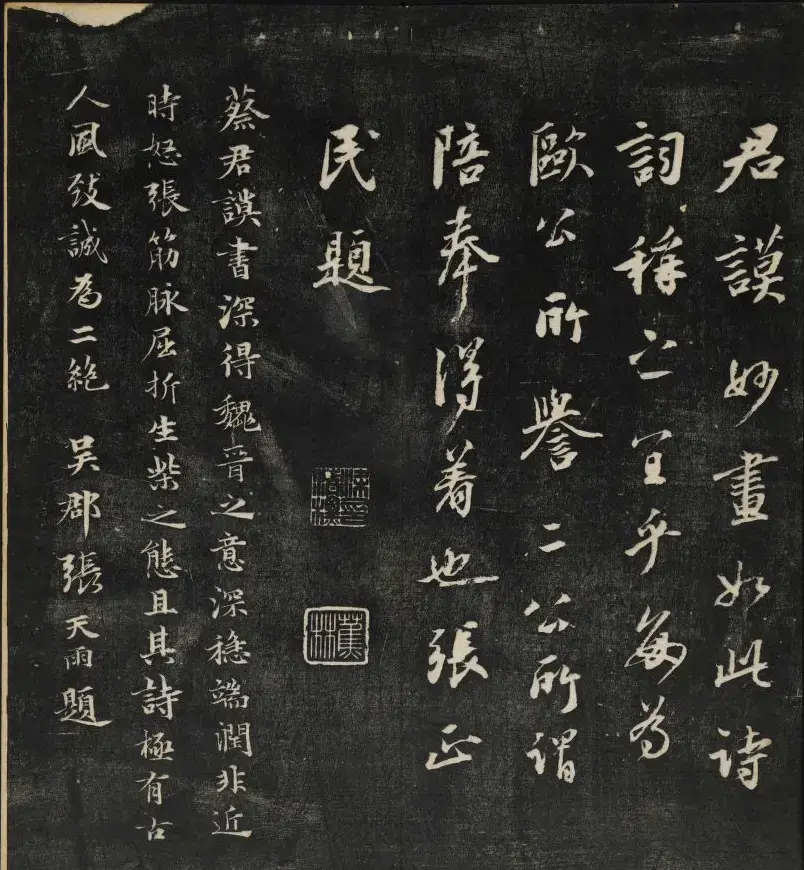 君謨妙畫如此詩
詞稱之宜乎每為
歐公所譽二公所謂
陪奉得着也張正
民題
蕉林
蔡君謨書深得魏晉之意深穩端潤非近
時怒張筋脉屈折生柴之態且其詩極有古
人風致誠為二絶 吴郡張天雨題